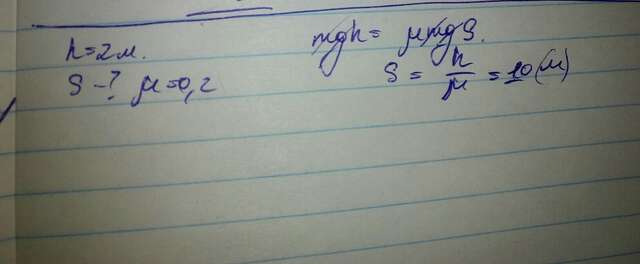 h=2м.
S-? μ=0,2
mgh= μmgS.
S = h/μ = 10(м)